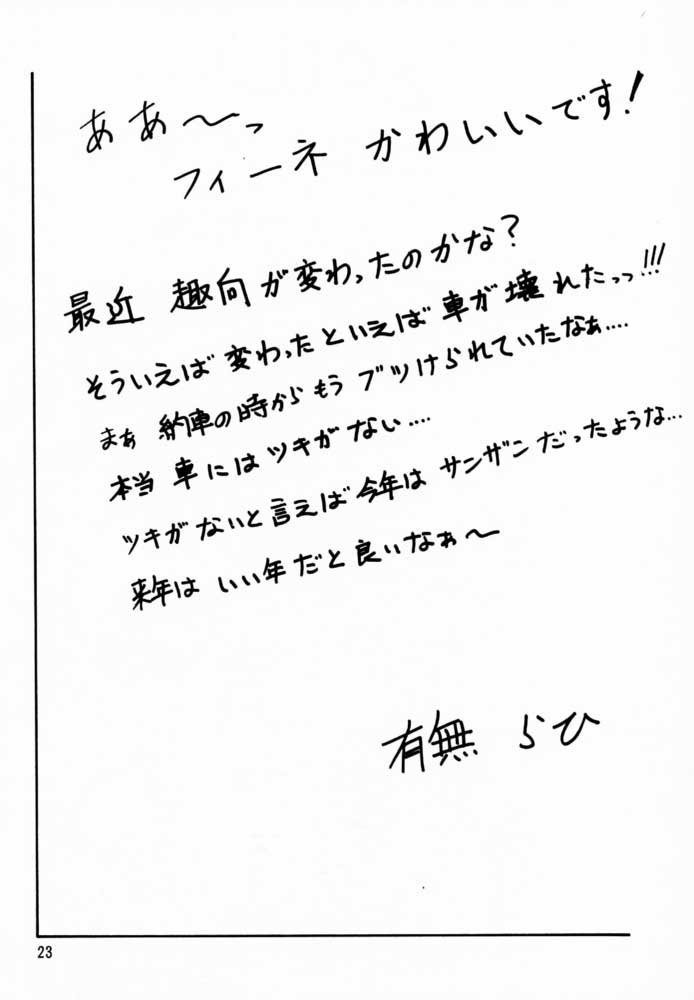 ああ〜っ
フィーネ かわいいです!
最近 趣向が変わったのかな?
そういえば 変わったといえば 車が 壊れたっっ!!!
まぁ 納車の時から もう ブツけられていたなぁ....
本当 車には ツキが ない....
ツキがないと言えば 今年は サンザンだったような...
来年は いい年だと良いなぁ〜
有無 らひ
23